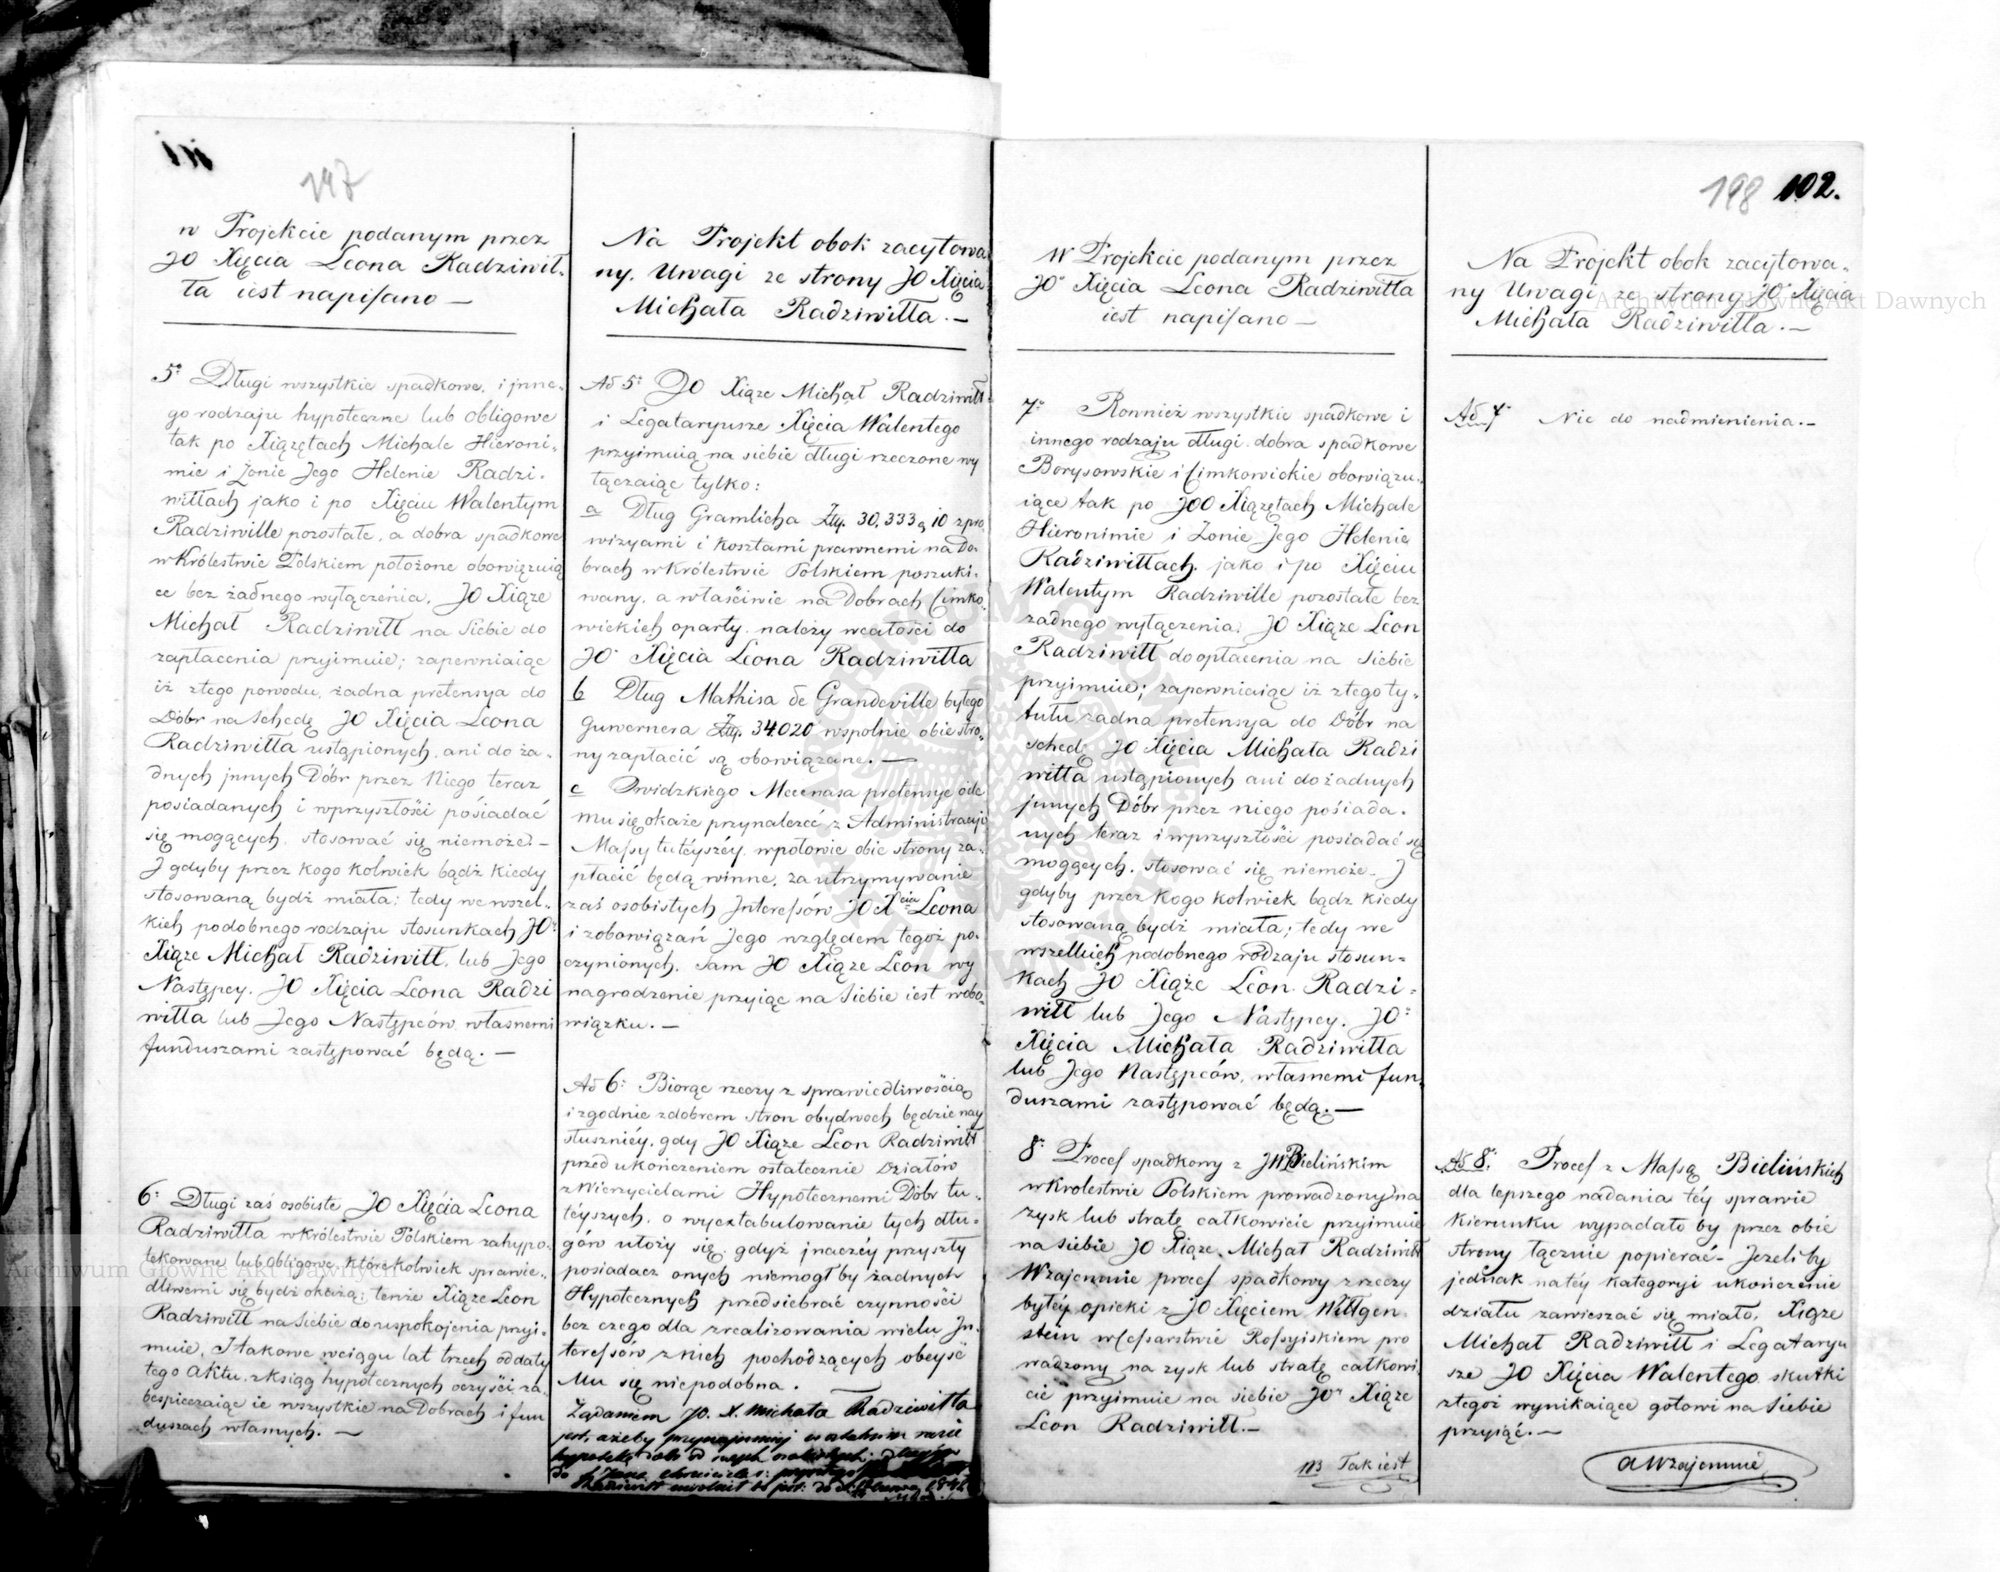 197
w Projekcie podanym przez
JO Xięcia Leona Radziwił-
ła iest napisano —
5º Długi wszystkie spadkowe, i inne-
go rodzaju hypoteczne lub obligowe
tak po Xiążętach Michale Hieroni-
mie i żonie Jego Helenie Radzi-
wiłłach jako i po Xięciu Walentym
Radziwille pozostałe, a dobra spadkowe
w Królestwie Polskiem położone obowięzuią
ce bez żadnego wyłączenia, JO Xiąże
Michał Radziwiłł na siebie do
zapłacenia przyimuie; zapewniaiąc
iż z tego powodu, żadna pretensya do
Dóbr na schedę JO Xięcia Leona
Radziwiłła ustąpionych, ani do ża-
dnych jnnych Dóbr przez Niego teraz
posiadanych i w przyszłości posiadać
się mogących, stosować się niemoże. —
J gdyby przez kogo kolwiek bądź kiedy
stosowaną bydź miała; tedy we wszel-
kich podobnego rodzaju stosunkach JO
Xiąże Michał Radziwiłł, lub Jego
Następcy, JO Xięcia Leona Radzi
wiłła lub Jego Następców, własnemi
funduszami zastępować będą. —
6º Długi zaś osobiste JO Xięcia Leona
Radziwiłła w Królestwie Polskiem zahypo-
tekowane lub obligowe, które kolwiek sprawie-
dliwemi się bydź okażą; tenże Xiąże Leon
Radziwiłł na siebie do uspokojenia przyi-
muie, J takowe w ciągu lat trzech od daty
tego aktu, z ksiąg hypotecznych oczyści, za-
bespieczaiąc ie wszystkie na Dobrach i fun
duszach własnych. —
Na Projekt obok zacytowa
ny, Uwagi ze strony JO Xięcia
Michała Radziwiłła. —
Ad 5º JO Xiąże Michał Radziwiłł
i Legataryusze Xięcia Walentego
przyimuią na siebie długi rzeczone wy
łączaiąc tylko:
a Dług Gramlicha Złp. 30,333 g 10 z pro-
wizyami i kosztami prawnemi na Do-
brach w Królestwie Polskiem poszuki-
wany, a właściwie na Dobrach Cimko-
wickich oparty, należy w całości do
JO Xięcia Leona Radziwiłła
b Dług Mathisa de Grandeville byłego
guwernera Złp. 34020 wspolnie obie stro-
ny zapłacić są obowiązane. —
c Dwidzkiego Mecenasa pretensye ile
mu się okaże przynależeć z Administracyi
Massy tuteyszéy, w połowie obie strony za-
płacić będą winne, za utrzymywanie
zaś osobistych Interessów JO Xcia Leona
i zobowiązań Jego względem tegoż po-
czynionych, sam JO Xiąże Leon wy
nagrodzenie przyiąć na siebie iest w obo-
wiązku. —
Ad 6º Biorąc rzeczy z sprawiedliwością
i zgodnie z dobrem stron obydwoch będzie nay
słuszniéy, gdy JO Xiąże Leon Radziwiłł
przed ukończeniem ostatecznie Działów
z Wierzycielami Hypotecznemi Dóbr tu-
téyszych, o wyextabulowanie tych dłu-
gów ułoży się, gdyż jnaczéy przyszły
posiadacz onych niemogł by żadnych
Hypotecznych przedsiebrać czynności
bez czego dla zrealizowania wielu In-
teressów z nich pochodzących obeyść
Mu się niepodobna.
Żądaniem JO. X. Michała Radziwiłła
jest, ażeby przynajmniej w ostatnim razie
198 102.
W Projekcie podanym przez
JO Xięcia Leona Radziwiłła
iest napisano —
7º Rownież wszystkie spadkowe i
innego rodzaju długi, dobra spadkowe
Borysowskie i Cimkowickie obowiązu-
iące tak po JOO Xiążętach Michale
Hieronimie i Żonie Jego Helenie
Radziwiłłach, jako i po Xięciu
Walentym Radziwille pozostałe bez
żadnego wyłączenia, JO Xiąże Leon
Radziwiłł do opłacenia na siebie
przyimuie; zapewniaiąc iż z tego ty-
tułu żadna pretensya do Dóbr na
schedę JO Xięcia Michała Radzi
wiłła ustąpionych ani do żadnych
jnnych Dóbr przez niego posiada-
nych teraz i w przyszłości posiadać się
mogących, stosować się niemoże — J
gdyby przez kogo kolwiek bądź kiedy
stosowaną bydź miała; tedy we
wszelkich podobnego rodzaju stosun-
kach JO Xiąże Leon Radzi-
wiłł lub Jego Następcy, JO
Xięcia Michała Radziwiłła
lub Jego Następców, własnemi fun-
duszami zastępować będą. —
8º Process spadkowy z JW Bielińskim
w Krolestwie Polskiem prowadzony, na
zysk lub stratę całkowicie przyimuie
na siebie JO Xiąże Michał Radziwiłł
Wzajemnie process spadkowy z rzeczy
byłéy opieki z JO Xięciem Wittgen-
stein w Cesarstwie Rossyiskiem pro
wadzony na zysk lub stratę całkowi-
cie przyimuie na siebie JO Xiąże
Leon Radziwiłł. —
NB Tak iest
Na Projekt obok zacytowa-
ny Uwagi ze strony JO Xięcia
Michała Radziwiłła. —
Ad 7º Nic do nadmienienia. —
Ad 8º Process z Massą Bielińskich
dla lepszego nadania téy sprawie
kierunku wypadało by przez obie
strony łącznie popierać — Jeżeli by
jednak na téy kategoryi ukończenie
działu zawieszać się miało, Xiąże
Michał Radziwiłł i Legataryu
sze JO Xięcia Walentego skutki
z tegoż wynikaiące gotowi na siebie
przyiąć. —
a Wzajemnie
Archiwum Główne Akt Dawnych
Archiwum Główne Akt Dawnych